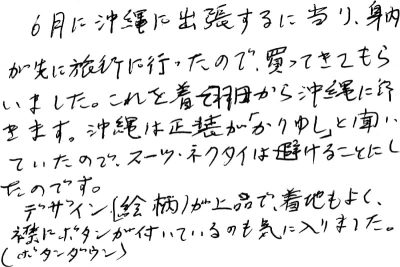 6月に沖縄に出張するに当り、身内
が先に旅行に行ったので、買ってきてもら
いました。これを着て羽田から沖縄に行
きます。沖縄は正装が「かりゆし」と聞い
ていたので、スーツ・ネクタイは避けることにし
たのです。
デザイン(絵柄)が上品で、着地もよく、
襟にボタンが付いているのも気に入りました。
(ボタンダウン)